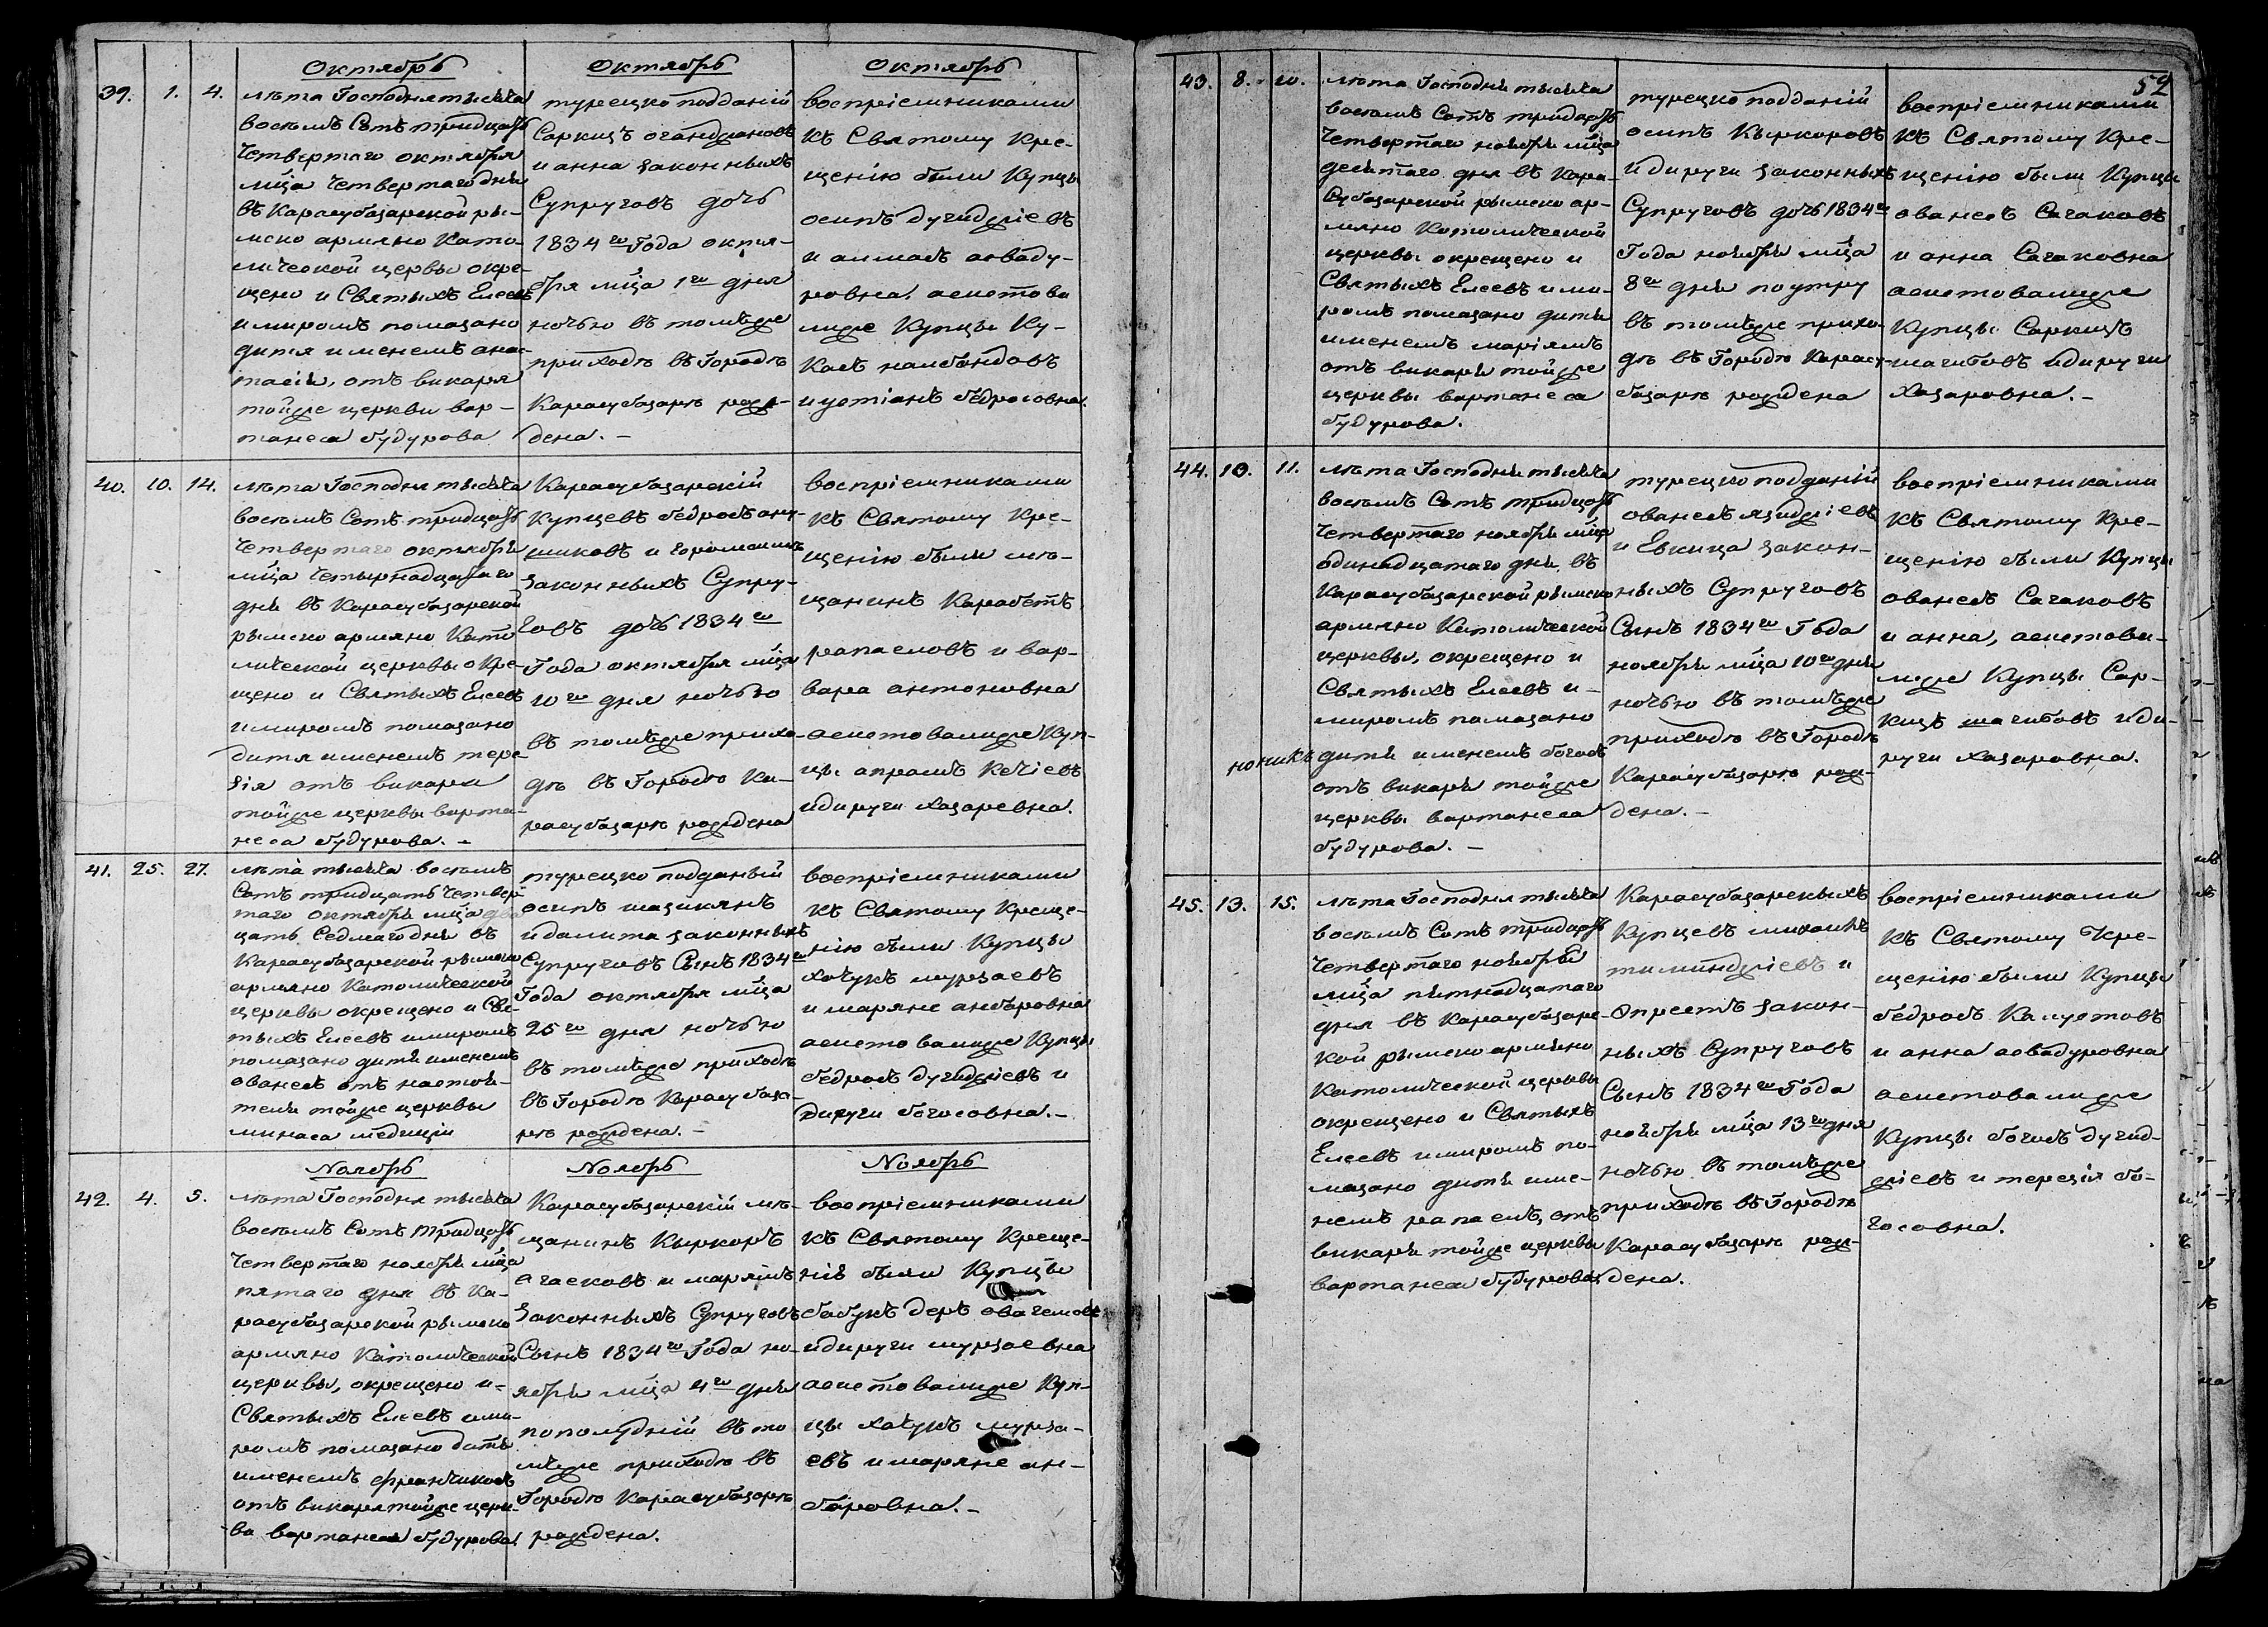 Октябрь
39. 1. 4.
лѣта Господня тысяча
восемь Сотъ тридцать
Четвертаго октября
мца Четвертаго дня
въ Карасубазарской ры-
мско армяно Като-
лической церквы окре-
щено и Святыхъ Елеевъ
и миромъ помазано
дитя именемъ ана-
тасія, отъ викаря
тойже церкви вар-
танеса будурова
Октябрь
турецко подданій
Саркизъ оганджановъ
и анна законныхъ
Супруговъ дочь
1834го Года октя-
бря мца 1го дня
ночью въ томъже
приходѣ въ Городѣ
Карасубазарѣ рож-
дена. –
Октябрь
воспріемниками
къ Святому Кре-
щенію были Купцы
осипъ дугиджіевъ
и алмасъ асваду-
ровна, асистова
лиже Купцы Ку-
касъ налбандовъ
и устіанъ бедросовна.
40. 10. 14.
лѣта Господня тысяча
восемь Сотъ тридцать
Четвертаго октября
мца Четырнадцатаго
дня въ Карасубазарской
рымско армяно Като
лической церквы окре-
щено и Святыхъ Елеевъ
и миромъ помазано
дитя именемъ тере
зія отъ викаря
тойже церквы варта-
неса будурова. –
Карасубазарскій
Купцевъ бедросъ аку-
шиковъ и горомсимъ
законныхъ Супру-
говъ дочь 1834го
Года октября мца
10го дня ночью
въ томъже прихо-
дѣ въ Городѣ Ка-
расубазарѣ рождена
воспріемниками
къ Святому Кре-
щенію были мѣ-
щанинъ Карабетъ
рапаеловъ и вар-
вара антоновна
асистовалиже Куп-
цы апрамъ Кечіевъ
идируги хазаревна.
41. 25. 27.
лѣта тысяча восемь
Сотъ тридцать Четвер
таго октября мца два
цать Седмаго дня въ
Карасубазарской рымско
армяно Католической
церквы окрещено и Свя-
тыхъ Елеевъ и миромъ
помазано дитя именемъ
ованесъ отъ настоя-
теля тойже церквы
минаса медиція
турецко подданый
осипъ шазикянъ
и далита законныхъ
Супруговъ Сынъ 1834го
Года октября мца
25го дня ночью
въ томъже приходѣ
въ Городѣ Карасубаза-
рѣ рождена. –
воспріемниками
къ Святому Креще-
нію были Купцы
хачукъ мурзаевъ
и маряне анбаровна
асисто валиже Купцы
бедросъ дугиджіевъ и
дируги богосовна. –
Ноябрь
42. 4. 5.
лѣта Господня тысяча
восемь Сотъ Тридцать
Четвертаго ноября мца
пятаго дня въ Ка-
расубазарской рымско
армяно Католической
церквы, окрещено и-
Святыхъ Елеевъ и ми-
ромъ помазано дитя
именемъ франчикосъ
отъ викаря тойже церк-
ва вартанеса будурова
Ноябрь
Карасубазарскій мѣ-
щанинъ Кыркоръ
агасковъ и марямъ
законныхъ Супруговъ
Сынъ 1834го Года но-
ября мца 4го дня
пополудній въ то
мъже приходѣ въ
Городѣ Карасубазарѣ
рождена.
Ноябрь
воспріемниками
къ Святому Креще-
нія были Купцы
бабукъ деръ овагемовъ
идируги мурзаевна
асистовалиже Куп-
цы хачукъ мурза-
евъ и маряне ан-
баровна. –
59
43. 8. 10.
лѣта Господня тысяча
восемь Сотъ тридцать
Четвертаго ноября мца
десятаго дня въ Кара-
Субазарской рымско ар-
мяно Католической
церквы окрещено и
Святыхъ Елеевъ и ми-
ромъ помазано дитя
именемъ маріямъ
отъ викаря тойже
церквы вартанеса
будурова.
турецко подданій
осипъ Кыркоровъ
идируги законныхъ
Супруговъ дочь 1834го
Года ноября мца
8го дня поутру
въ томъже прихо-
дѣ въ Городѣ Карасу-
базарѣ рождена
воспріемниками
къ Святому Кре-
щенію были Купцы
ованесъ Сагаковъ
и анна Сагаковна
асистовалиже
Купцы Саркизъ
шагибовъ идируги
Хазаровна. –
44. 10. 11.
лѣта Господня тысяча
восемь Сотъ тридцать
Четвертаго ноября мца
одинадцатаго дня, въ
Карасубазарской рымско
армяно Католической
церквы, окрещено и
Святыхъ Елеевъ и-
миромъ помазано
ноникъ дитя именемъ богосъ
отъ викаря тойже
церквы вартанеса
будурова. –
турецко подданій
ованесъ язиджіевъ
и Евкица закон-
ныхъ Супруговъ
Сынъ 1834го Года
ноября мца 10го дня
ночью въ томъже
приходѣ въ Городѣ
Карасубазарѣ рож-
дена. –
воспріемниками
къ Святому Кре-
щенію были Купцы
ованесъ Сагаковъ
и анна, асистова-
лиже Купцы Сар-
кизъ шагибовъ иди-
руги хазаровна.
45. 13. 15.
лѣта Господня тысяча
восемь Сотъ тридцать
Четвертаго ноября
мца пятнадцатаго
дня въ Карасубазарс-
кой рымско армяно
Католической церквы
окрещено и Святыхъ
Елеевъ и миромъ по-
мазано дитя име-
немъ рапаелъ, отъ
викаря тойже церквы
вартанеса будурова,
Карасубазарскыхъ
Купцевъ михаилъ
тиминджіевъ и
Опрестъ закон-
ныхъ Супруговъ
Сынъ 1834го Года
ноября мца 13го дня
ночью въ томъже
приходѣ въ Городѣ
Карасубазарѣ рож-
дена.
воспріемниками
къ Святому Кре-
щенію были Купцы
бедросъ Калустовъ
и анна асвадуровна
асистовалиже
Купцы богосъ дугид-
жіевъ и терезія бо-
госовна.